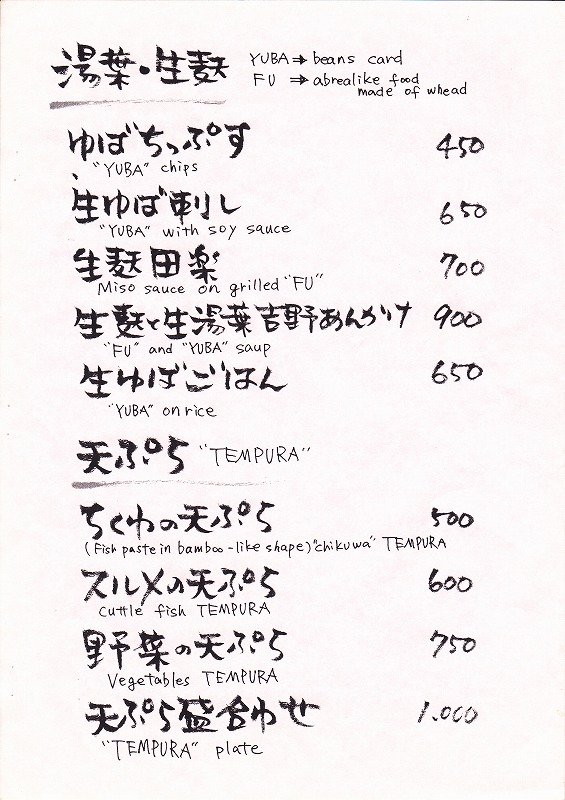 湯葉・生麩
YUBA ⇒ beans card
FU ⇒ abrealike food
made of whead
ゆばちっぷす 450
"YUBA" chips
生ゆば刺し 650
"YUBA" with soy sauce
生麩田楽 700
Miso sauce on grilled "FU"
生麩と生湯葉吉野あんかけ 900
"FU" and "YUBA" saup
生ゆばごはん 650
"YUBA" on rice
天ぷら "TEMPURA"
ちくわの天ぷら 500
(Fish paste in bamboo-like shape) "chikuwa" TEMPURA
スルメの天ぷら 600
cuttle fish TEMPURA
野菜の天ぷら 750
Vegetables TEMPURA
天ぷら盛合わせ 1.000
"TEMPURA" plate